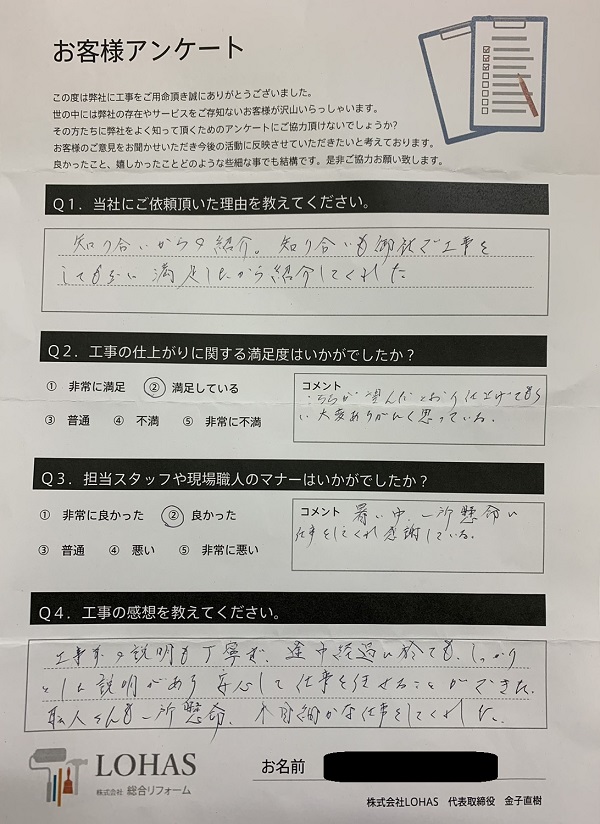 お客様アンケート
この度は弊社に工事をご用命頂き誠にありがとうございました。
世の中には弊社の存在やサービスをご存知ないお客様が沢山いらっしゃいます。
その方たちに弊社をよく知って頂くためのアンケートにご協力頂けないでしょうか?
お客様のご意見をお聞かせいただき今後の活動に反映させていただきたいと考えております。
良かったこと、嬉しかったことどのような些細な事でも結構です。是非ご協力お願い致します。
Q1. 当社にご依頼頂いた理由を教えてください。
知り合いからの紹介。知り合いも御社で工事を
してもらい満足したから紹介してくれた
Q2. 工事の仕上がりに関する満足度はいかがでしたか?
① 非常に満足 ② 満足している
③ 普通 ④ 不満 ⑤ 非常に不満
コメント
こちらが望んだとおり仕上げてもら
い大変ありがたく思っている。
Q3. 担当スタッフや現場職人のマナーはいかがでしたか?
① 非常に良かった ② 良かった
③ 普通 ④ 悪い ⑤ 非常に悪い
コメント 暑い中、一所懸命に
仕事をしてくれ感謝している。
Q4. 工事の感想を教えてください。
工事の説明も丁寧で、途中経過に於ても、しっかり
とした説明があり安心して仕事を任せることができた。
職人さんも一所懸命、細かな仕事をしてくれた。
LOHAS
株式会社 総合リフォーム
お名前
株式会社LOHAS 代表取締役 金子直樹